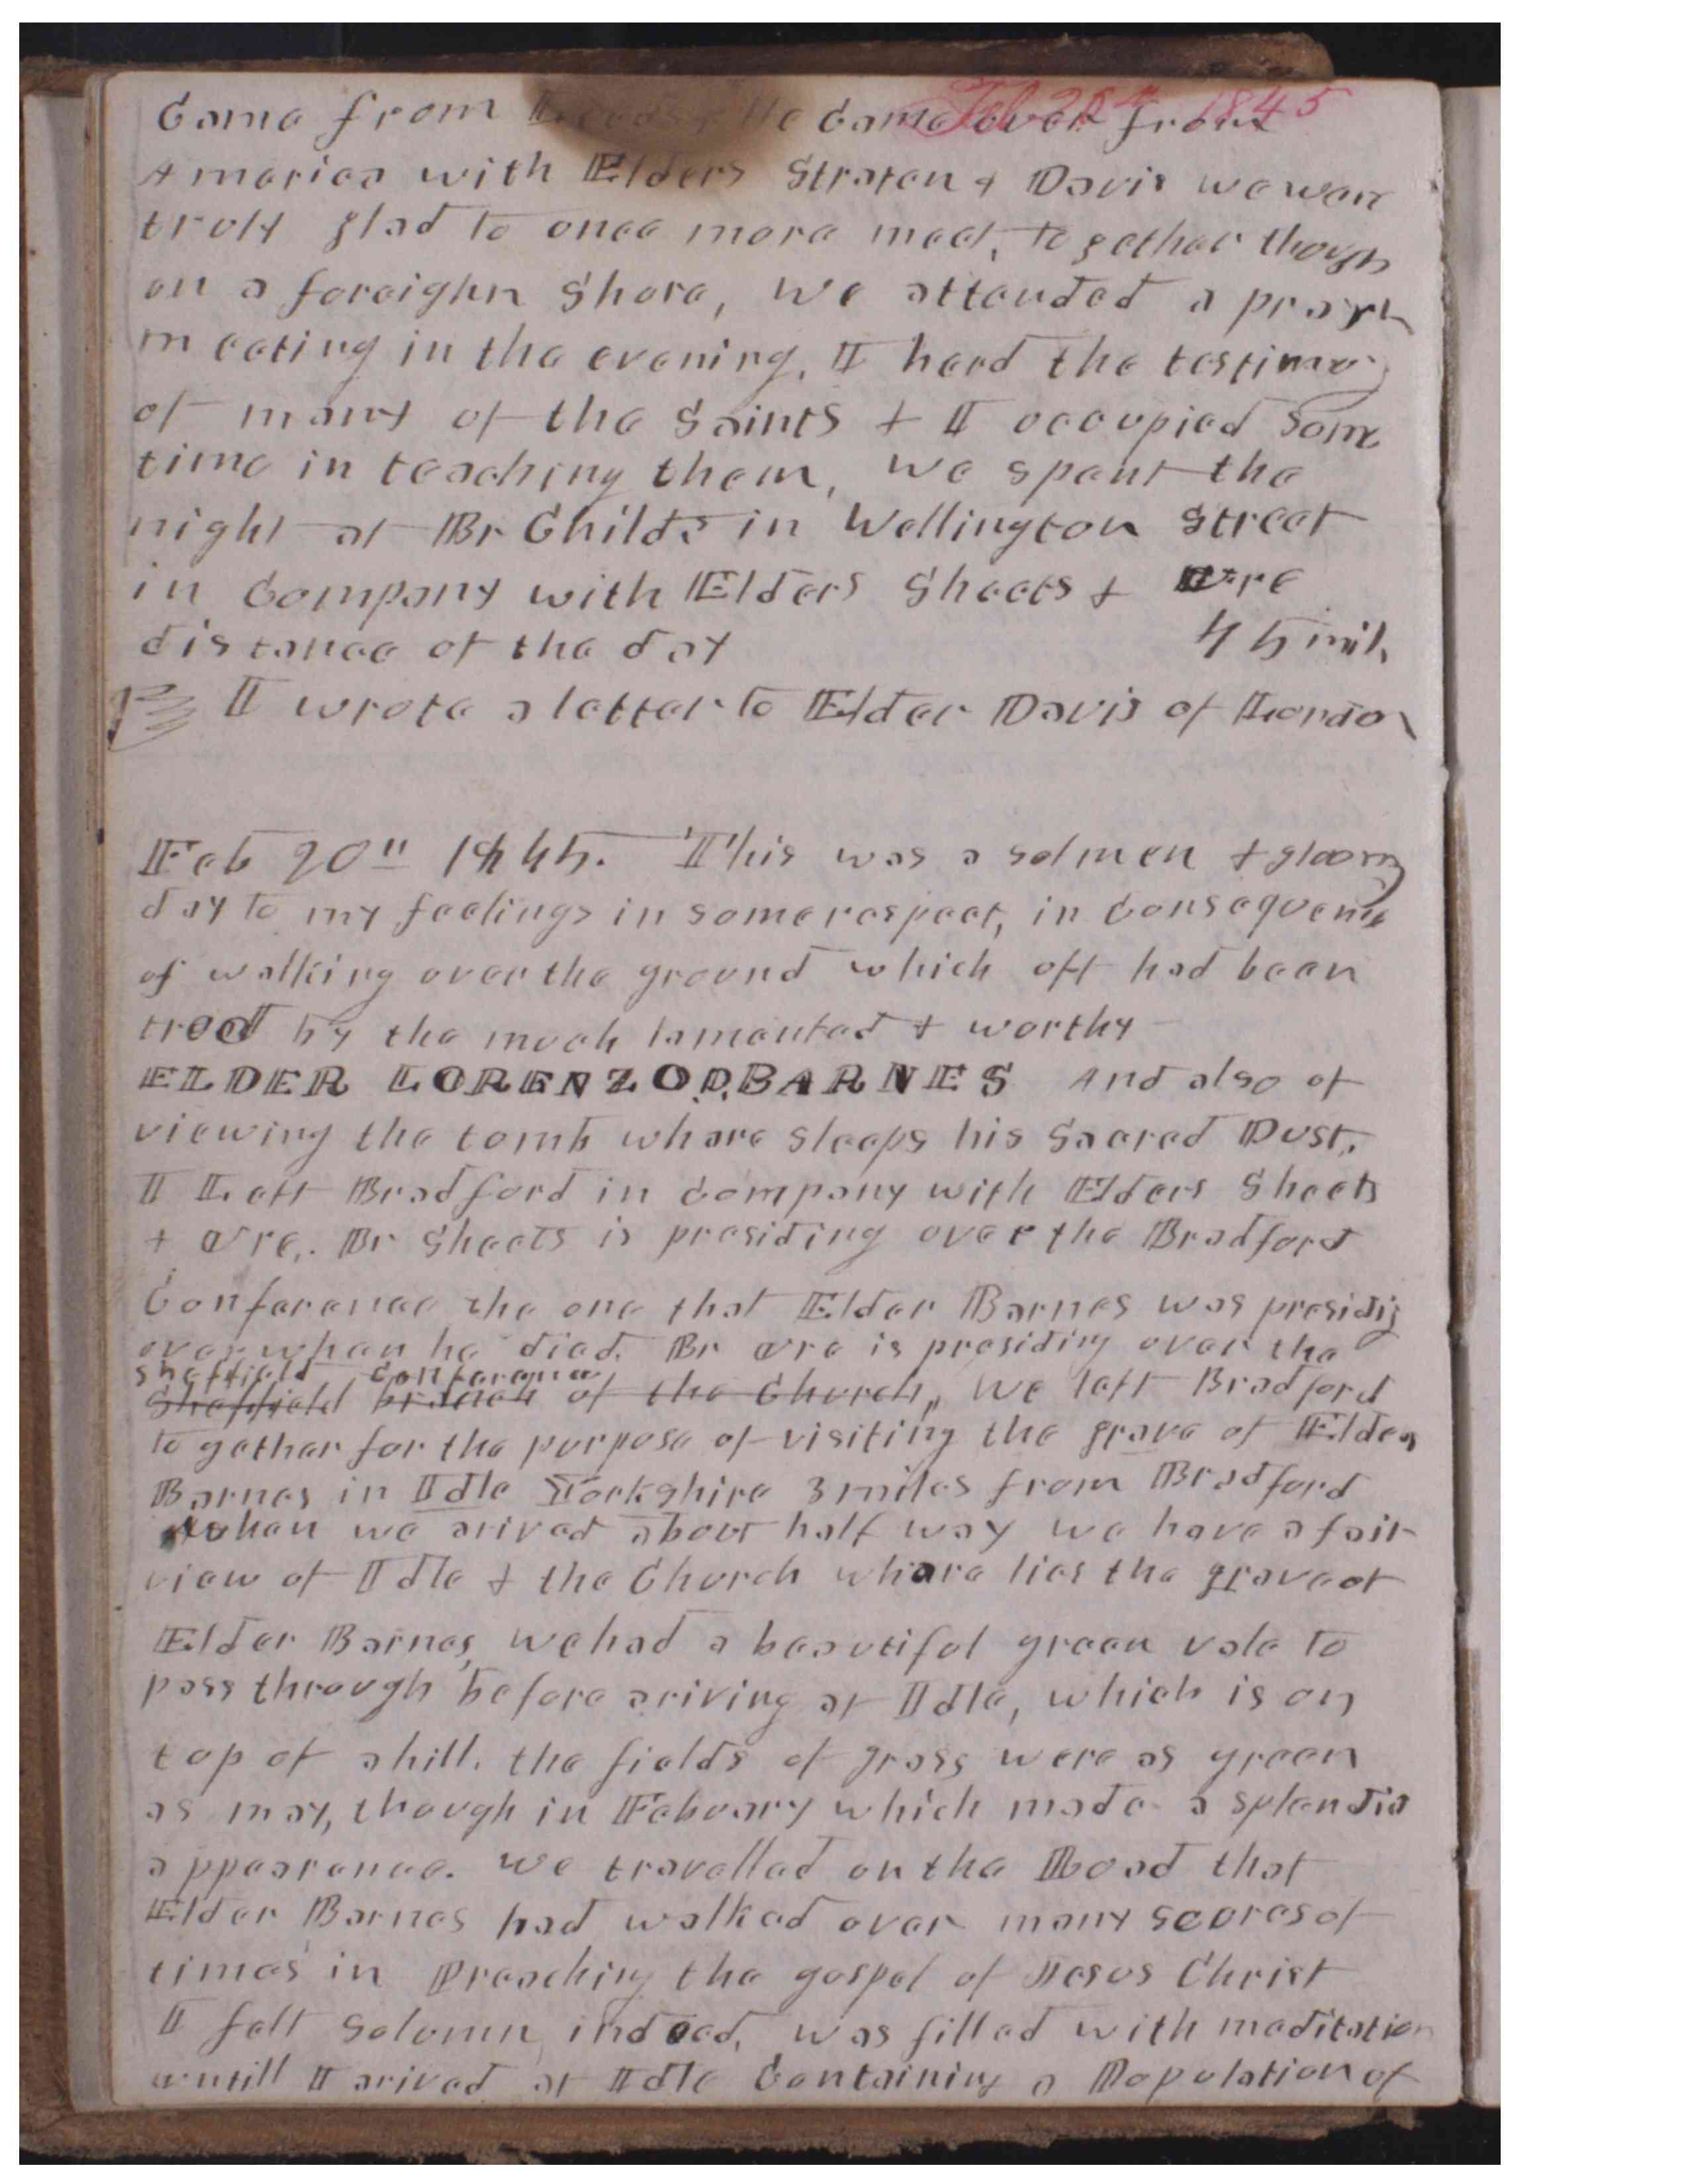 Feb 20th 1845
Came from Leeds & He Came over from
America with Elders Straten & Davis we ware
truly glad to once more meet, together though
on a foreighn Shore, we attended a prayer
meeting in the evening, I herd the testimony
of many of the Saints & I occupied some
time in teaching them, we spent the
night at Br Childs in Wellington Street
in Company with Elders Sheets & Ure
distance of the day 45 mil.
I wrote a letter to Elder Davis of London
Feb 20th 1845. This was a solmen & gloomy
day to my feelings in some respect, in Consequence
of walking over the ground which oft had been
trod by the much lamented & worthy
ELDER LORENZO D, BARNES And also of
viewing the tomb whare sleeps his Sacred Dust.
I Left Bradford in Company with Elders Sheets
& Ure,. Br Sheets is presiding over the Bradford
Conference the one that Elder Barnes was presidig
over when he died. Br Ure is presiding over the
Sheffield Conference
Sheffield branch of the Church, we left Bradford
to gether for the purpose of visiting the grave of Elder
Barnes in Idle Yorkshire 3 miles from Bradford
when we arived about half way we have a fair
view of Idle & the Church whare lies the grave of
Elder Barnes, we had a beautiful green vale to
pass through before ariving at Idle, which is on
top of a hill. the fields of grass were as green
as may, though in Febuary which made a splendid
appearance. we travelled on the Road that
Elder Barnes had walked over many scores of
times in Preaching the gospel of Jesus Christ
I felt Solomn indeed, was filled with meditation
untill I arived at Idle Containing a Population of